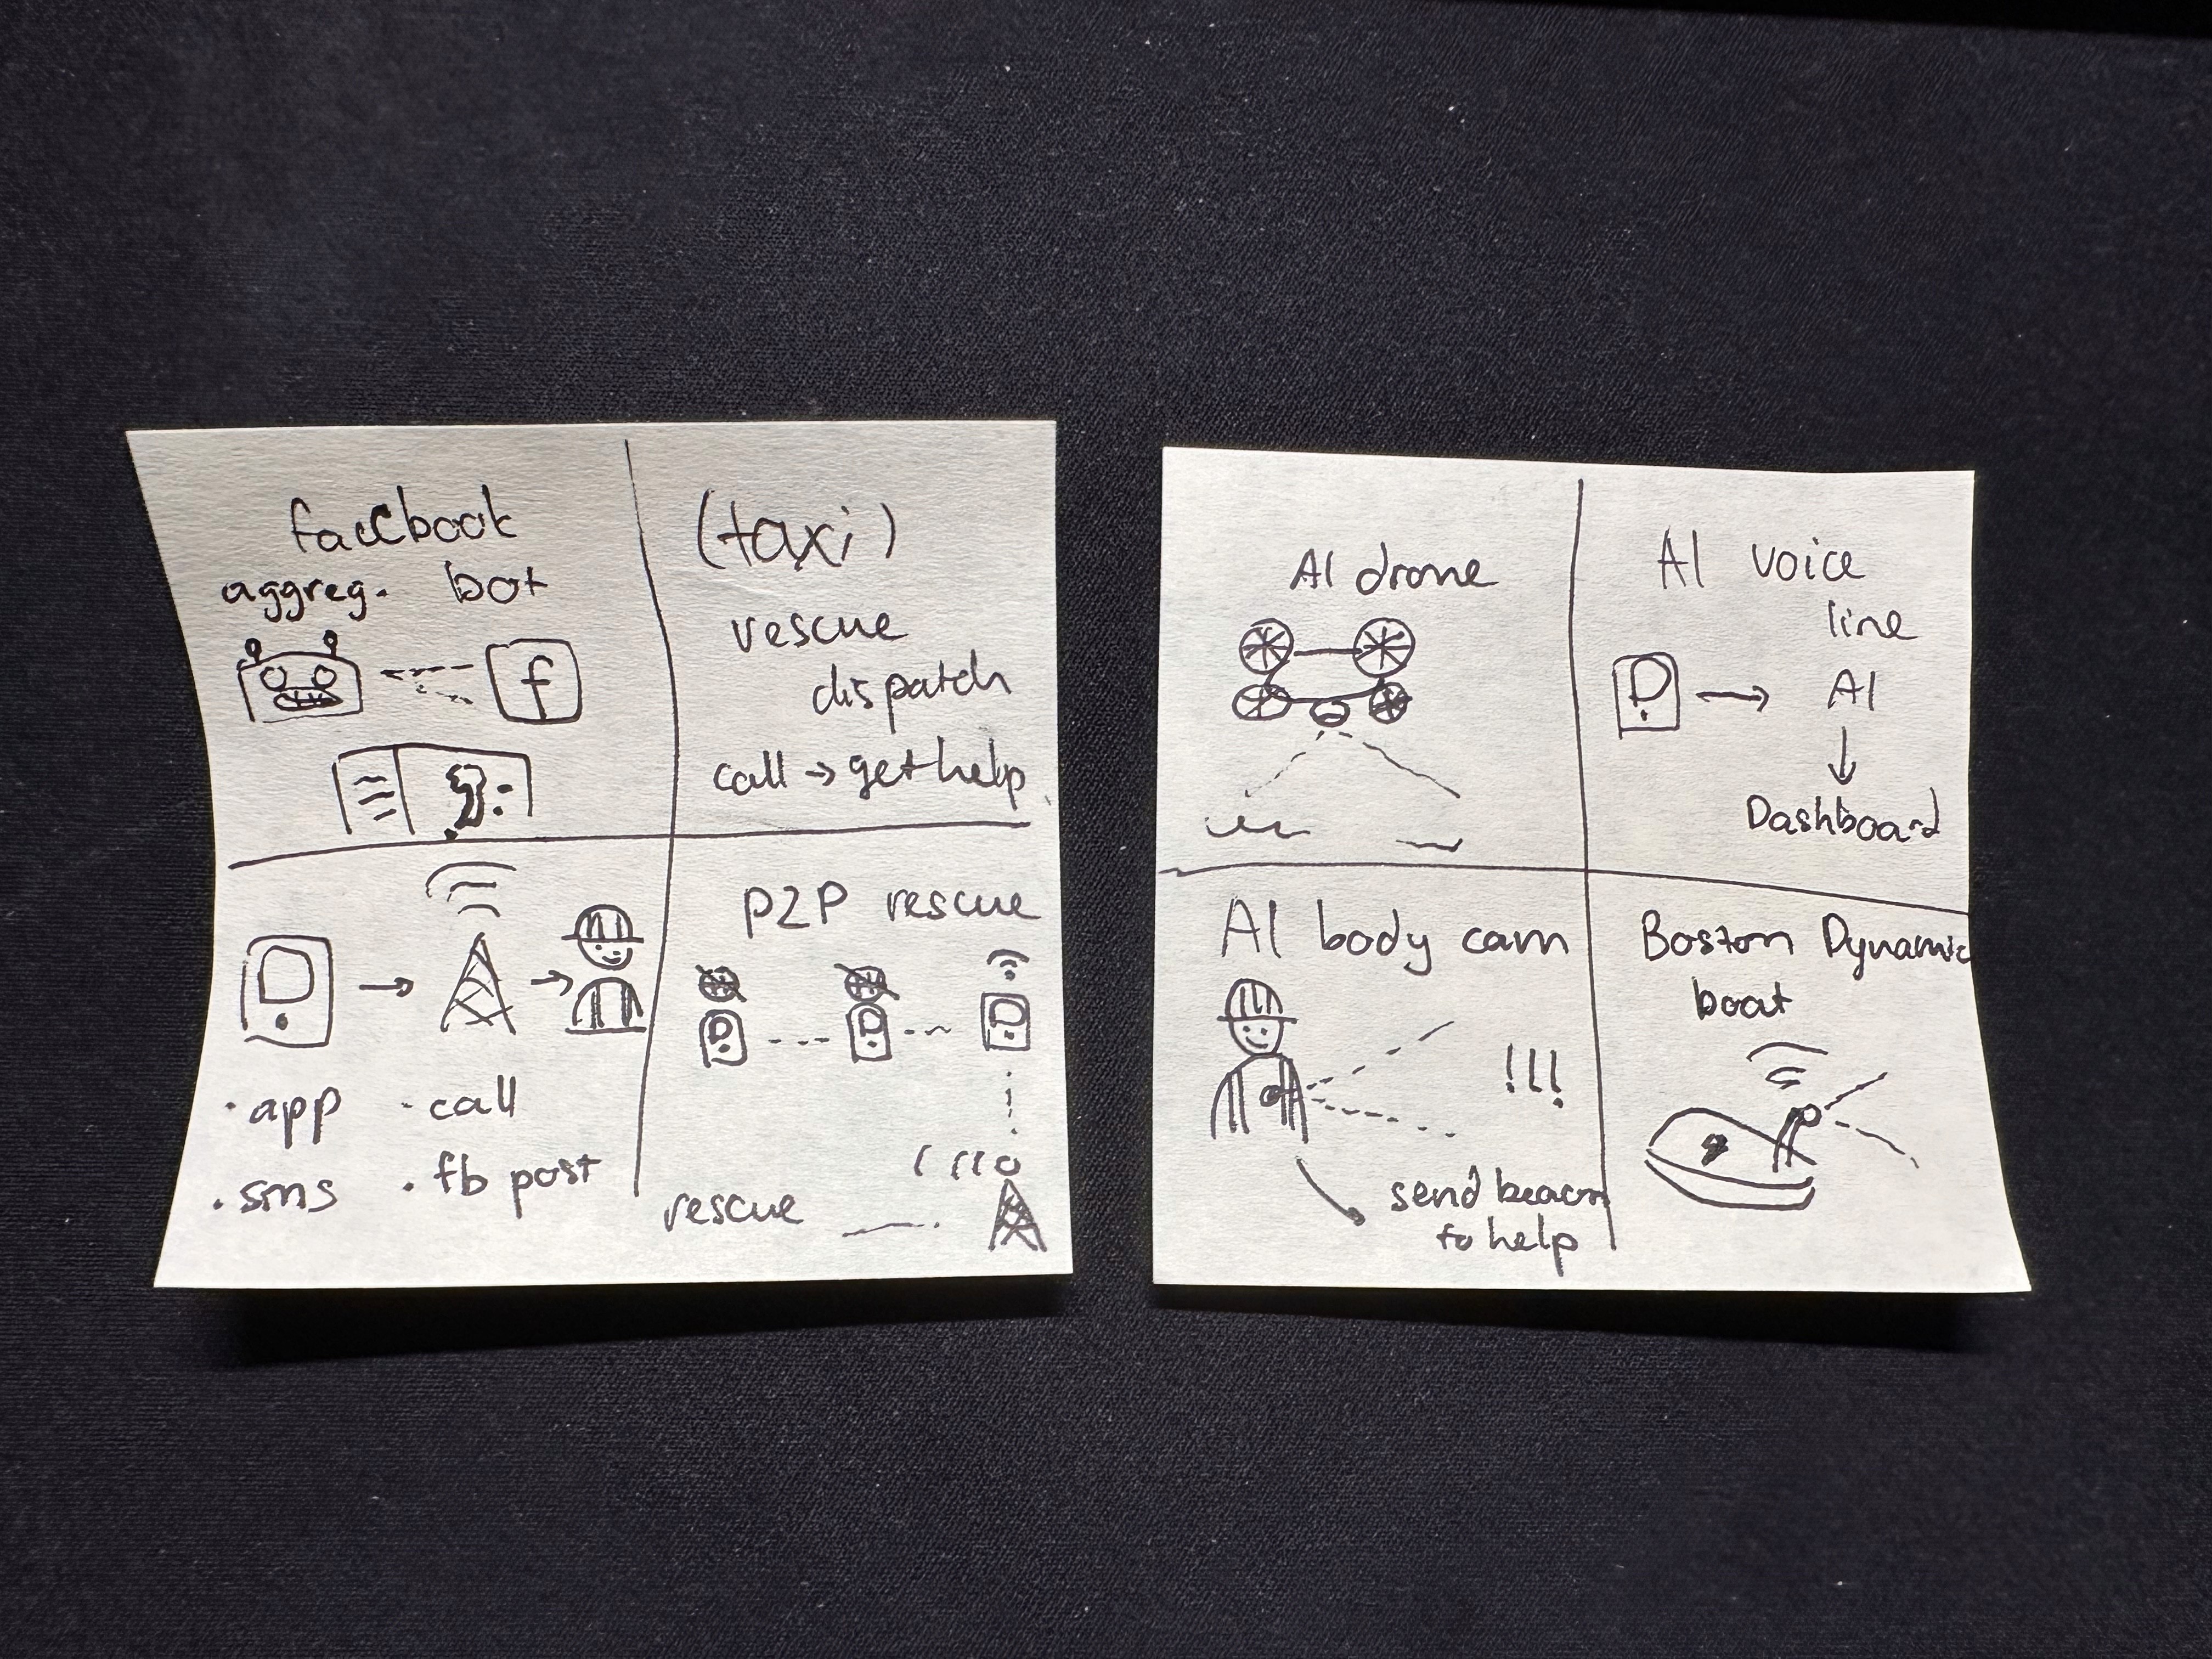 facebook
aggreg. bot
f
(taxi)
rescue
dispatch
call → get help
· app
· call
· sms
· fb post
P2P rescue
rescue
AI drone
AI voice
line
AI
Dashboard
AI body cam
!!!
send beacon
to help
Boston Dynamic
boat